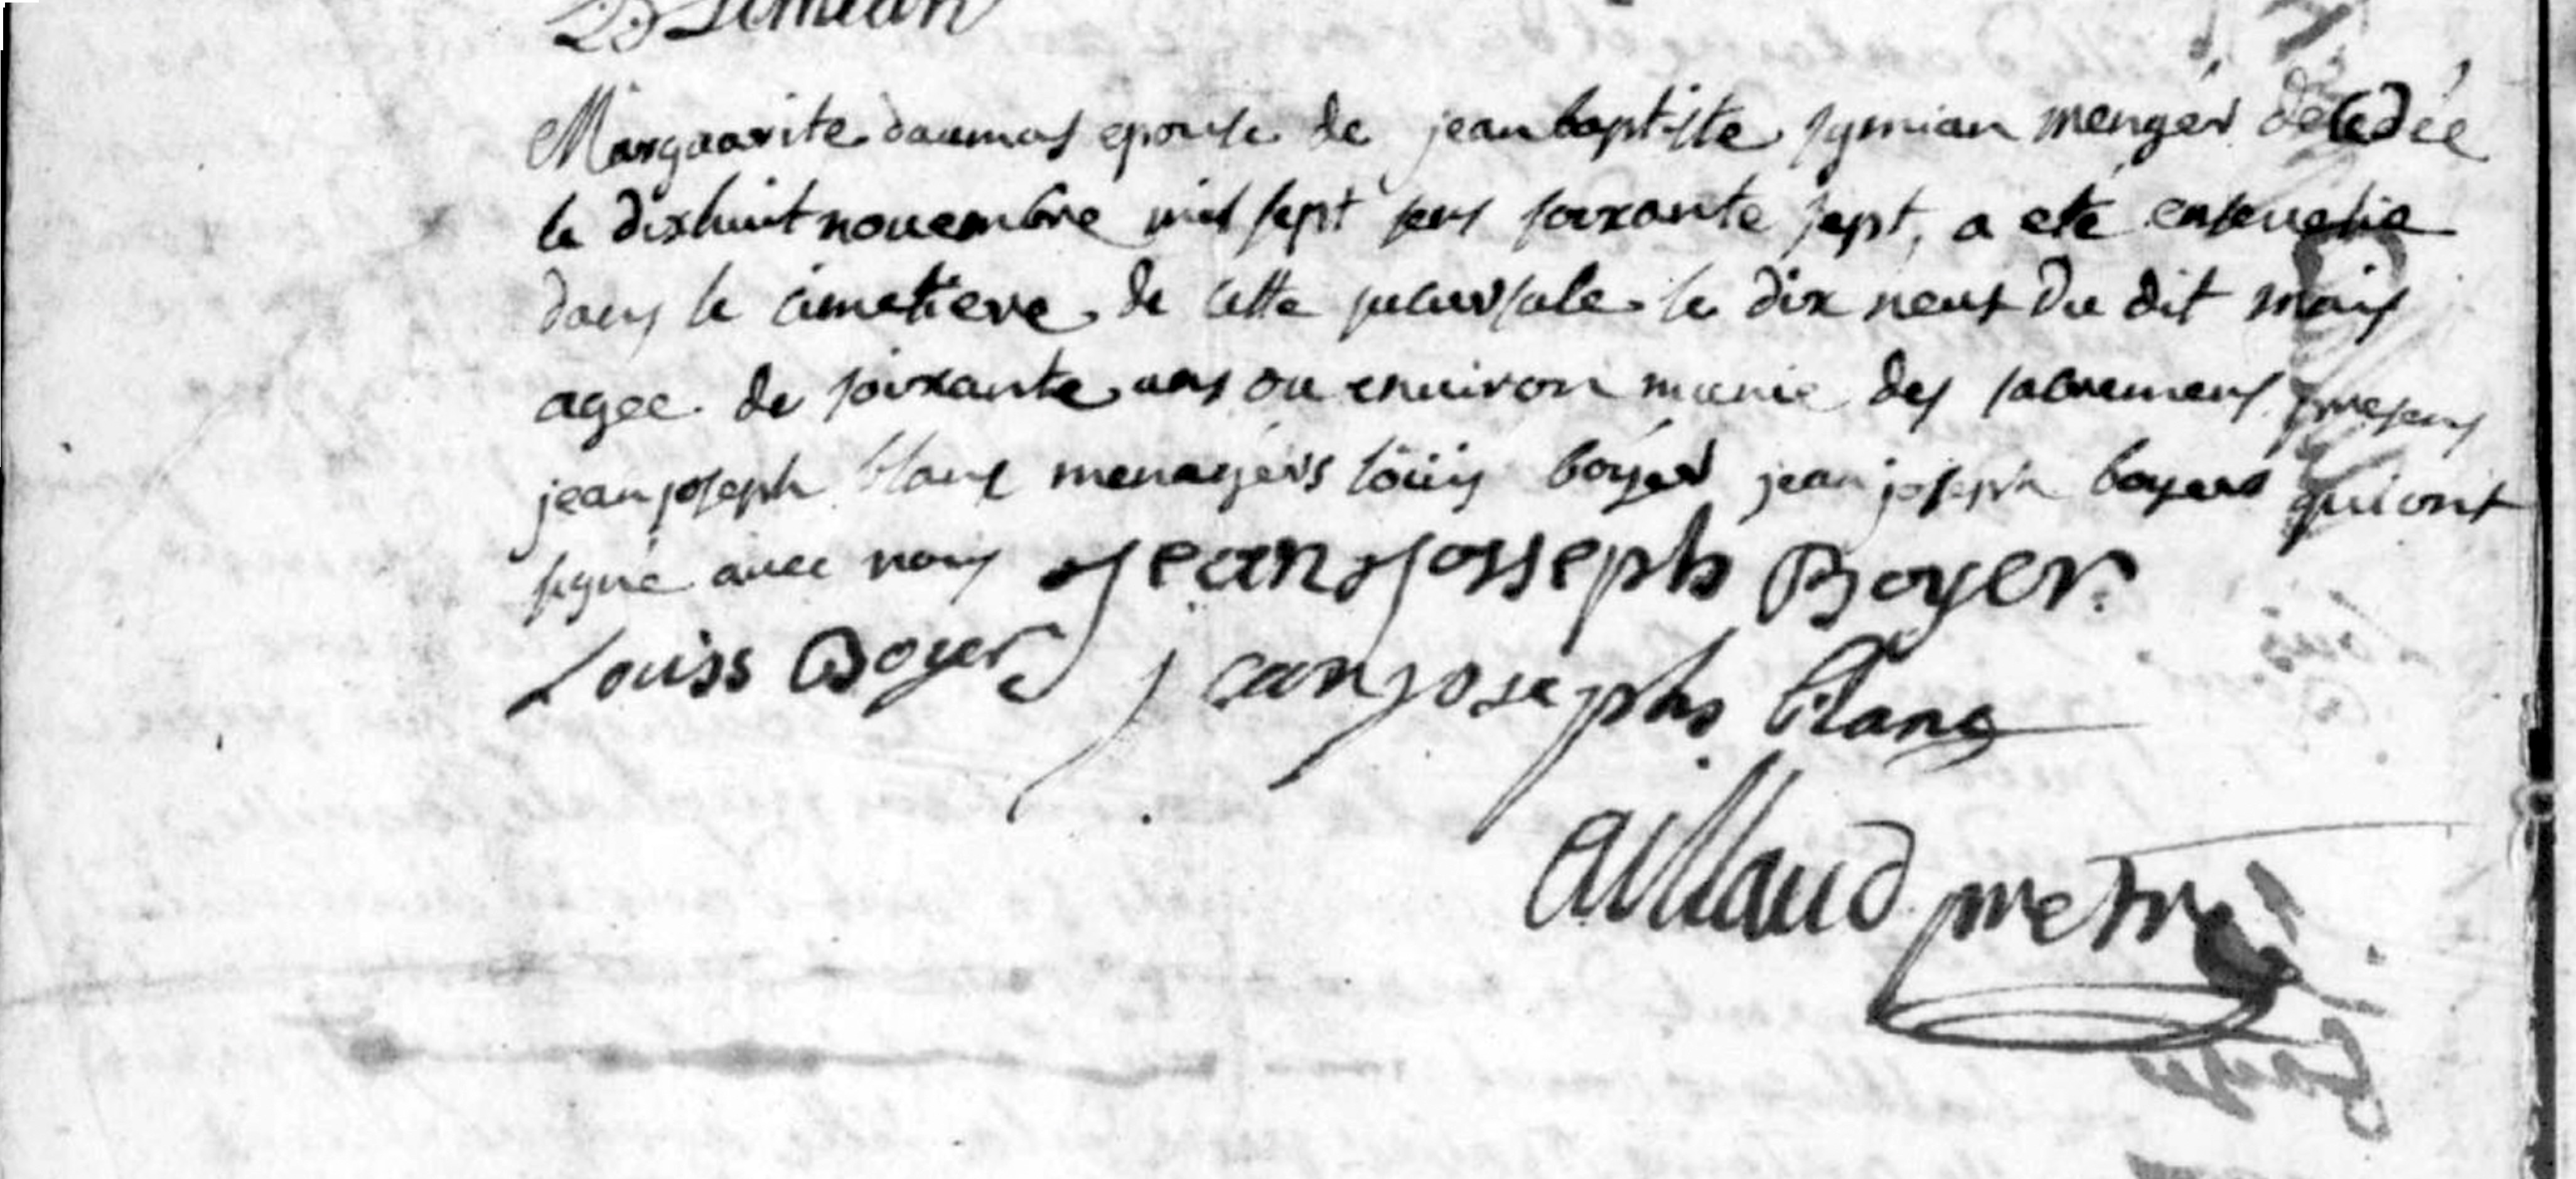 Simian
Marguarite daumas epouse de jean baptiste symian menger decedée
le dixhuit novembre mil sept sens soixante sept, a eté ensevelie
dans le cimetiere de cette sucursale le dix neuf du dit mois
agee de soixante ans ou environ munie des sacremens presens
jean joseph blanc menagers loüis boyer jean joseph boyers qui ont
signé avec nous jean josseph Boyer
Louiss Boyer jean joseph blanc
aillaud pretre